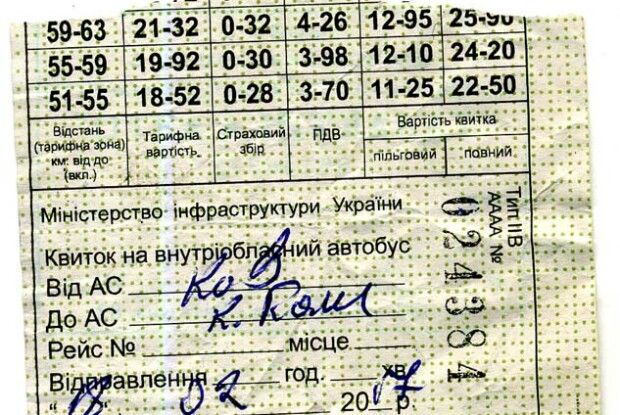 59-63 21-32 0-32 4-26 12-95 25-90
55-59 19-92 0-30 3-98 12-10 24-20
51-55 18-52 0-28 3-70 11-25 22-50
Відстань (тарифна зона) км: від до (вкл.) Тарифна вартість Страховий збір ПДВ Вартість квитка пільговий повний
Міністерство інфраструктури України
Квиток на внутріобласний автобус
Від АС Ков
До АС К. Каш
Рейс № місце
Відправлення год. хв.
"18" 02 2017 р.
Тип ІІВ
АААА № 024384